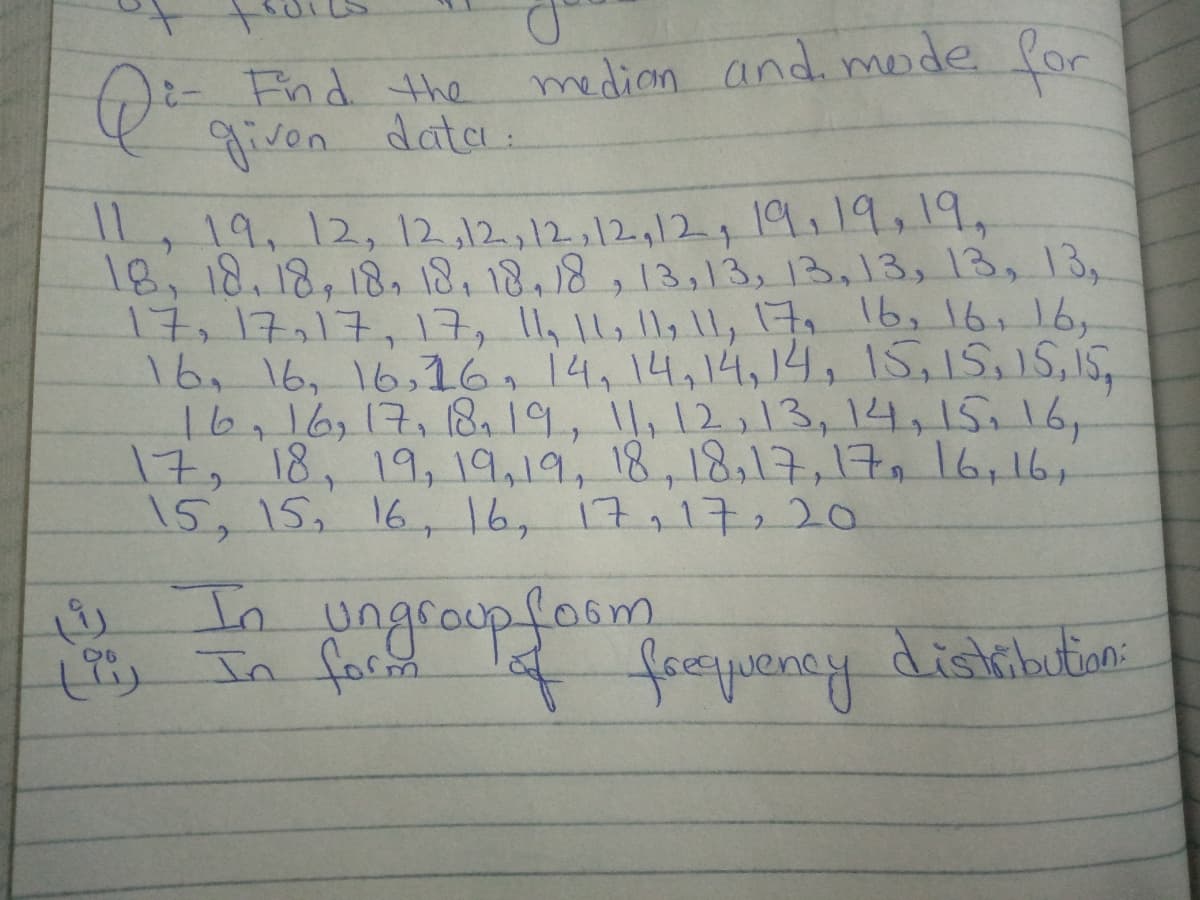 Q:- Find the median and mode for
given data:
11, 19, 12, 12,12,12,12,12, 19,19,19,
18, 18,18,18,18,18,18,13,13,13,13,13,13,
17,17,17,17,11,11,11,11,17,16,16,16,
16,16,16,16,14,14,14,14,15,15,15,15,
16,16,17,18,19,11,12,13,14,15,16,
17,18,19,19,19,18,18,17,17,16,16,
15,15,16,16,17,17,20
(i) In ungroup form
(ii) In form of frequency distribution: